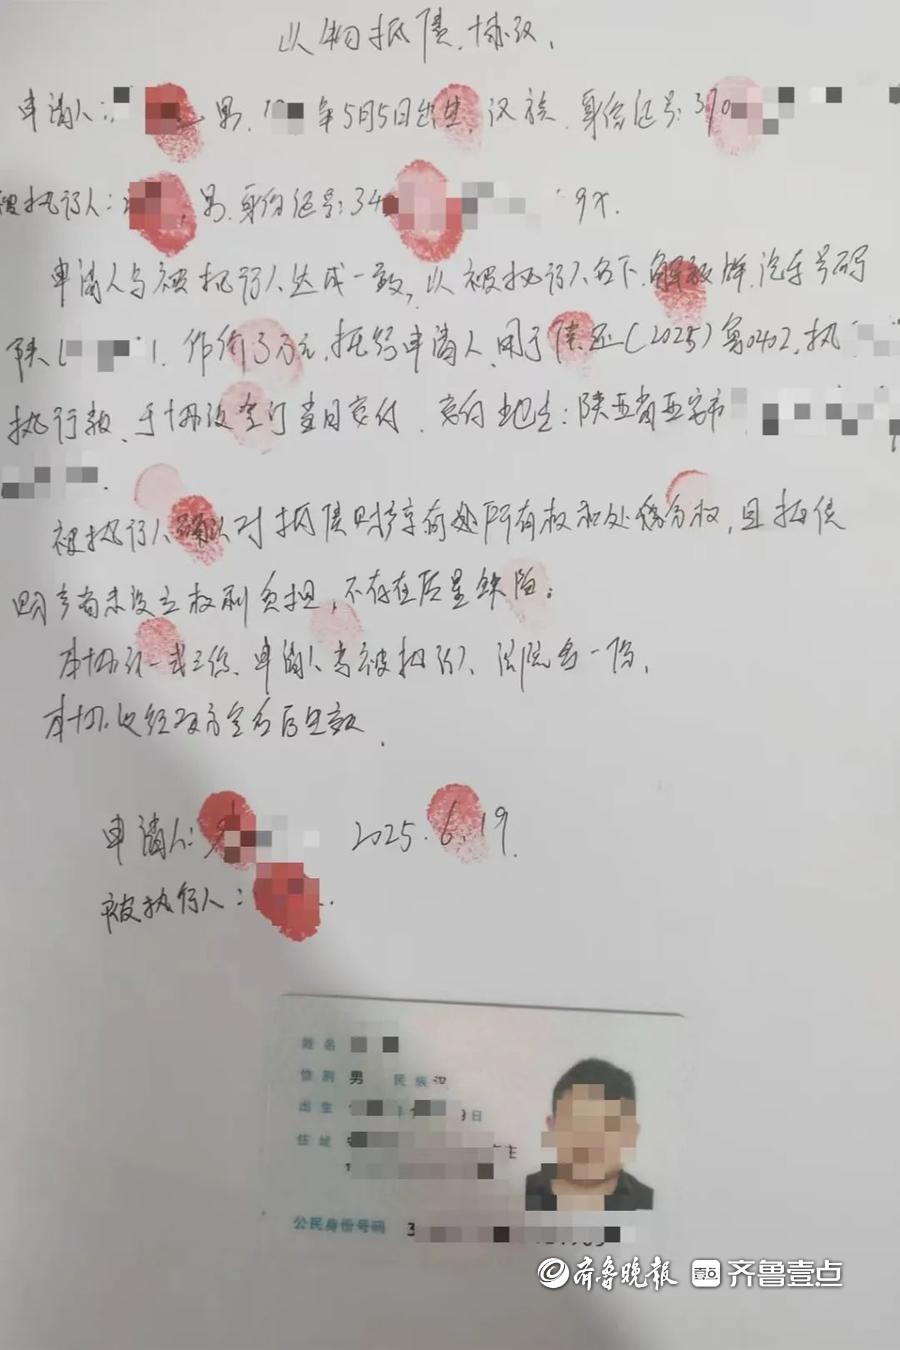 以物抵债协议.
申请人: 男. 年5月5日出生. 汉族. 身份证号: 370
被执行人: 男. 身份证号: 34 9X.
申请人与被执行人达成一致, 以被执行人名下解放牌.汽车号码
陕 作价3万元. 抵给申请人. 用于 (2025) 0402. 执
执行款. 于协议签订当日交付. 交付地点: 陕西省西安市
被执行人确认对抵债财产享有 所有权和处分权, 且抵债
财产尚未设立权利负担, 不存在质量缺陷.
本协议一式三份. 申请人与被执行人、法院各一份.
本协议经双方签名后生效.
申请人: 2025.6.19.
被执行人:
姓名
性别 男 民族 汉
出生 9日
住址
公民身份号码 3
齐鲁晚报 壹点 齐鲁壹点